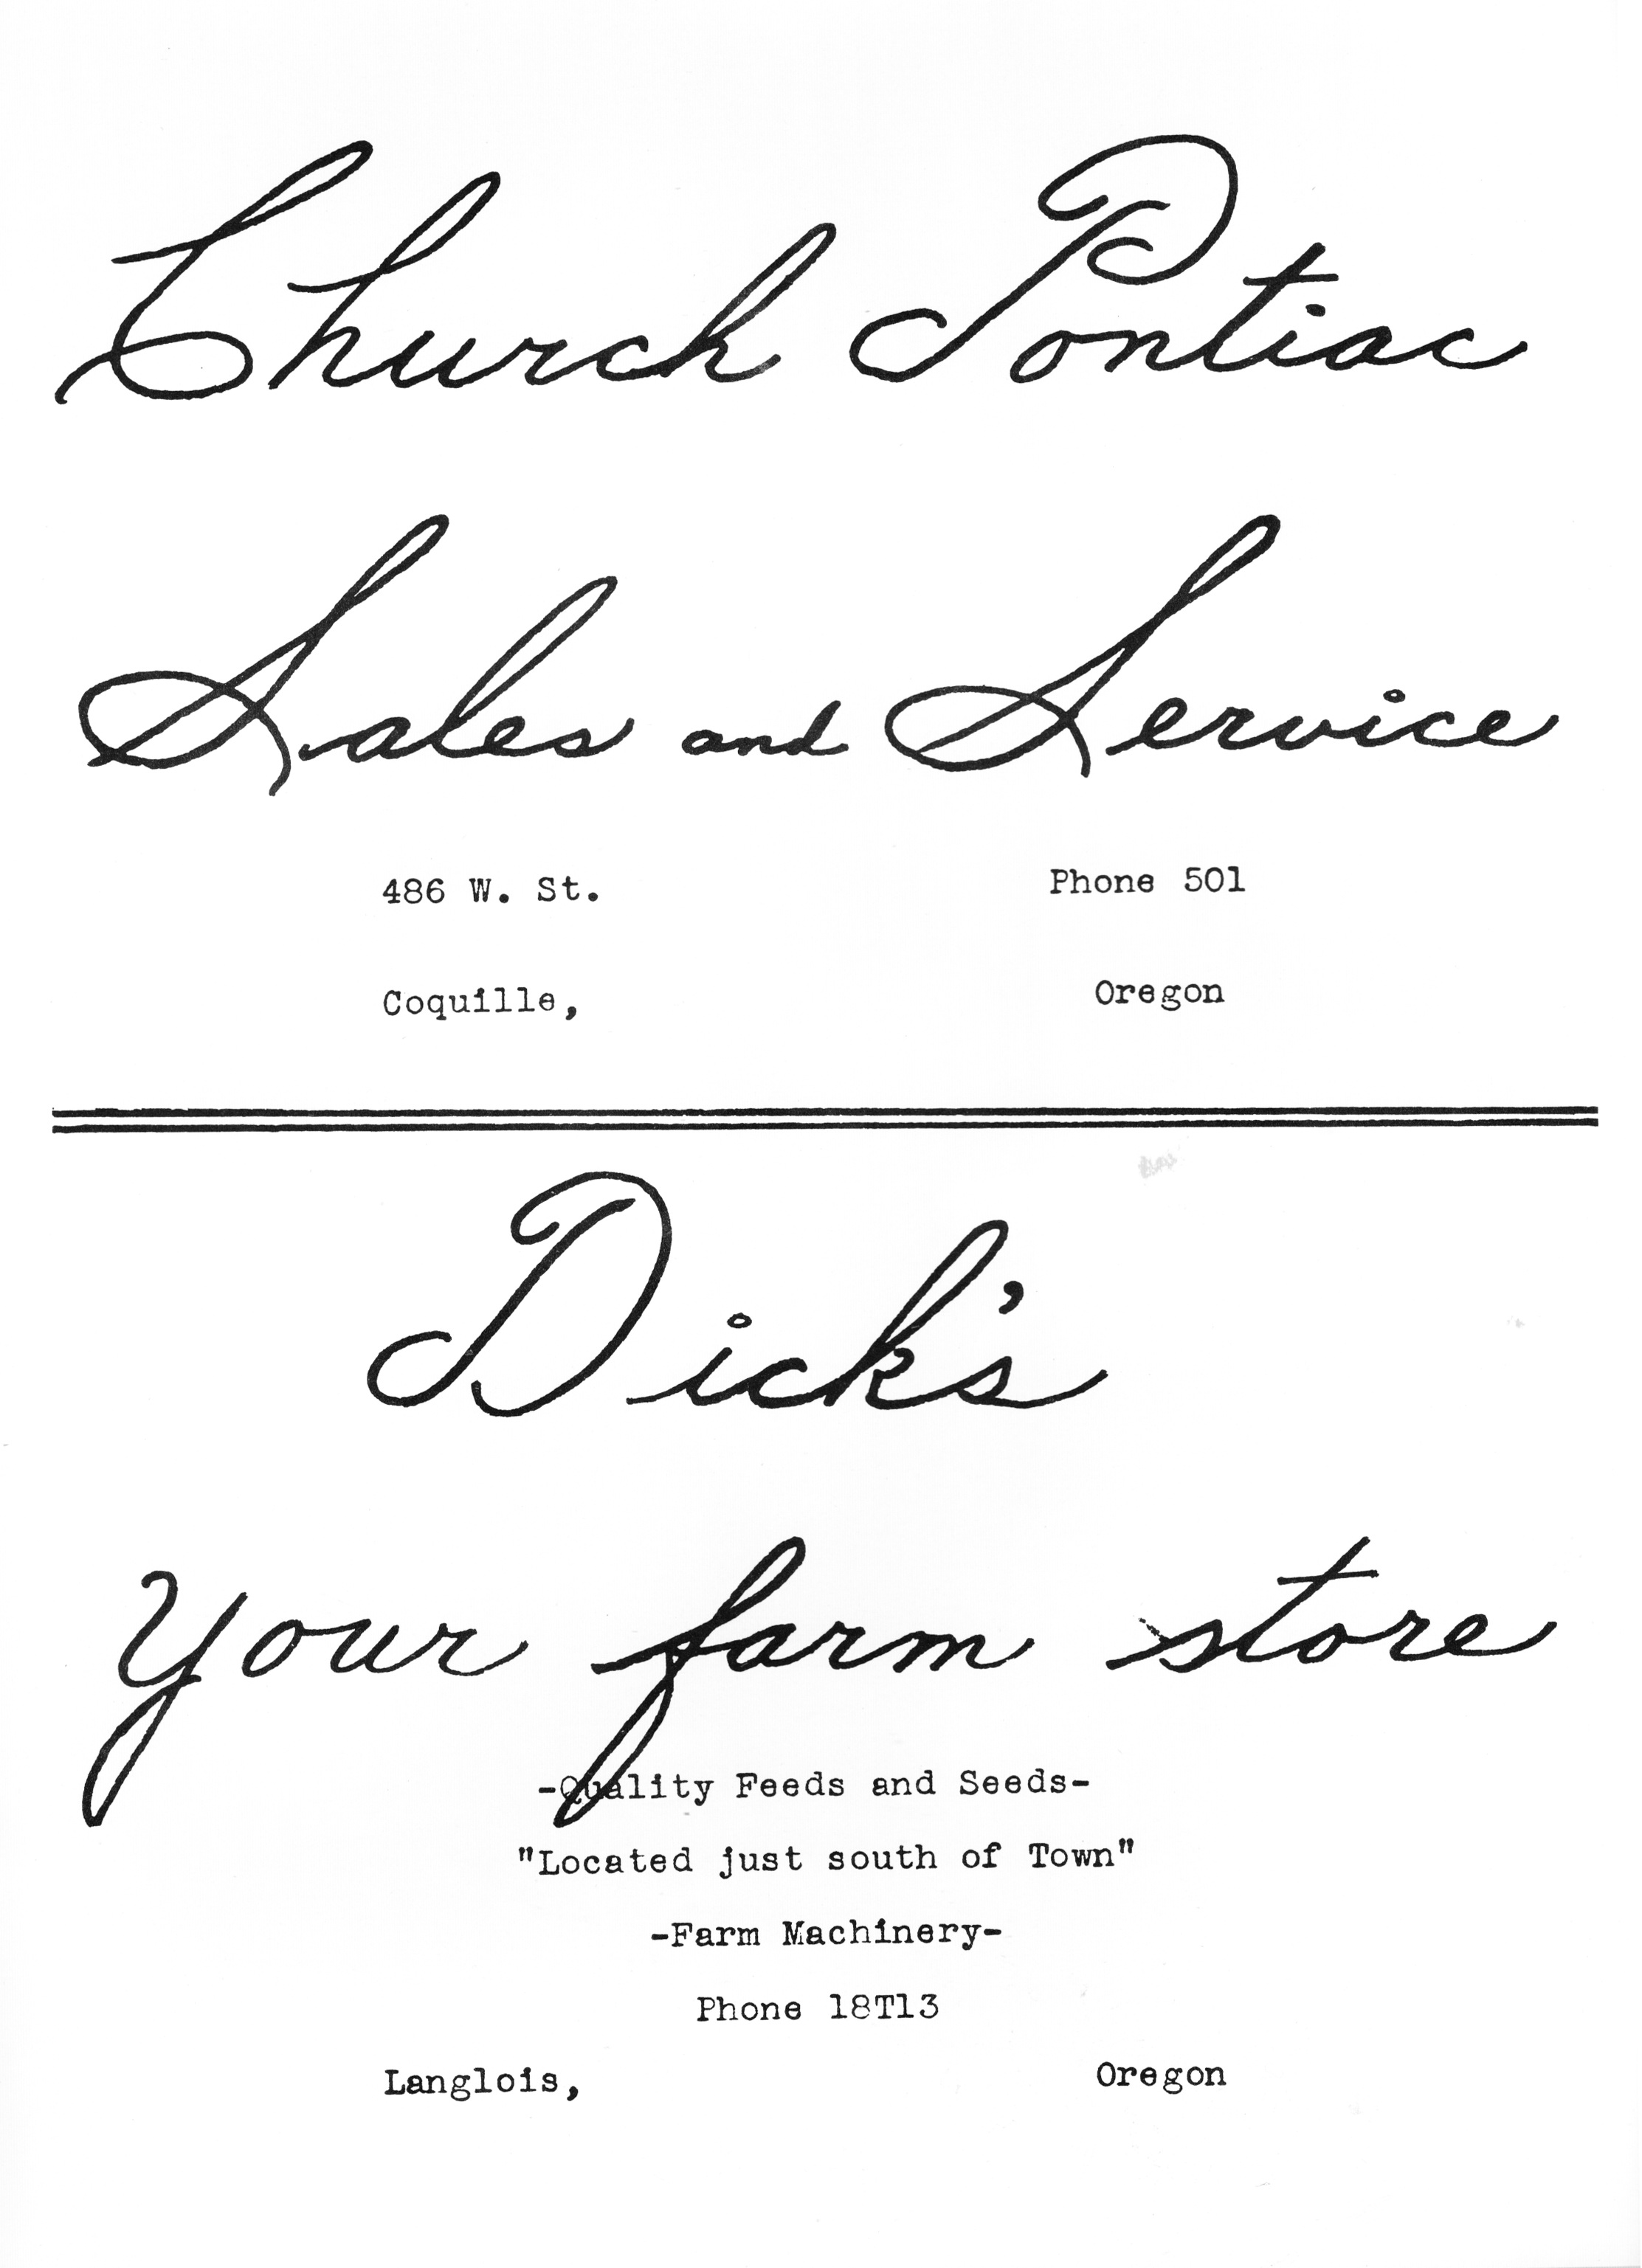 Church Pontiac
Sales and Service
486 W. St. Phone 501
Coquille, Oregon
Dick's
Your farm store
-Quality Feeds and Seeds-
"Located just south of Town"
-Farm Machinery-
Phone 18T13
Langlois, Oregon